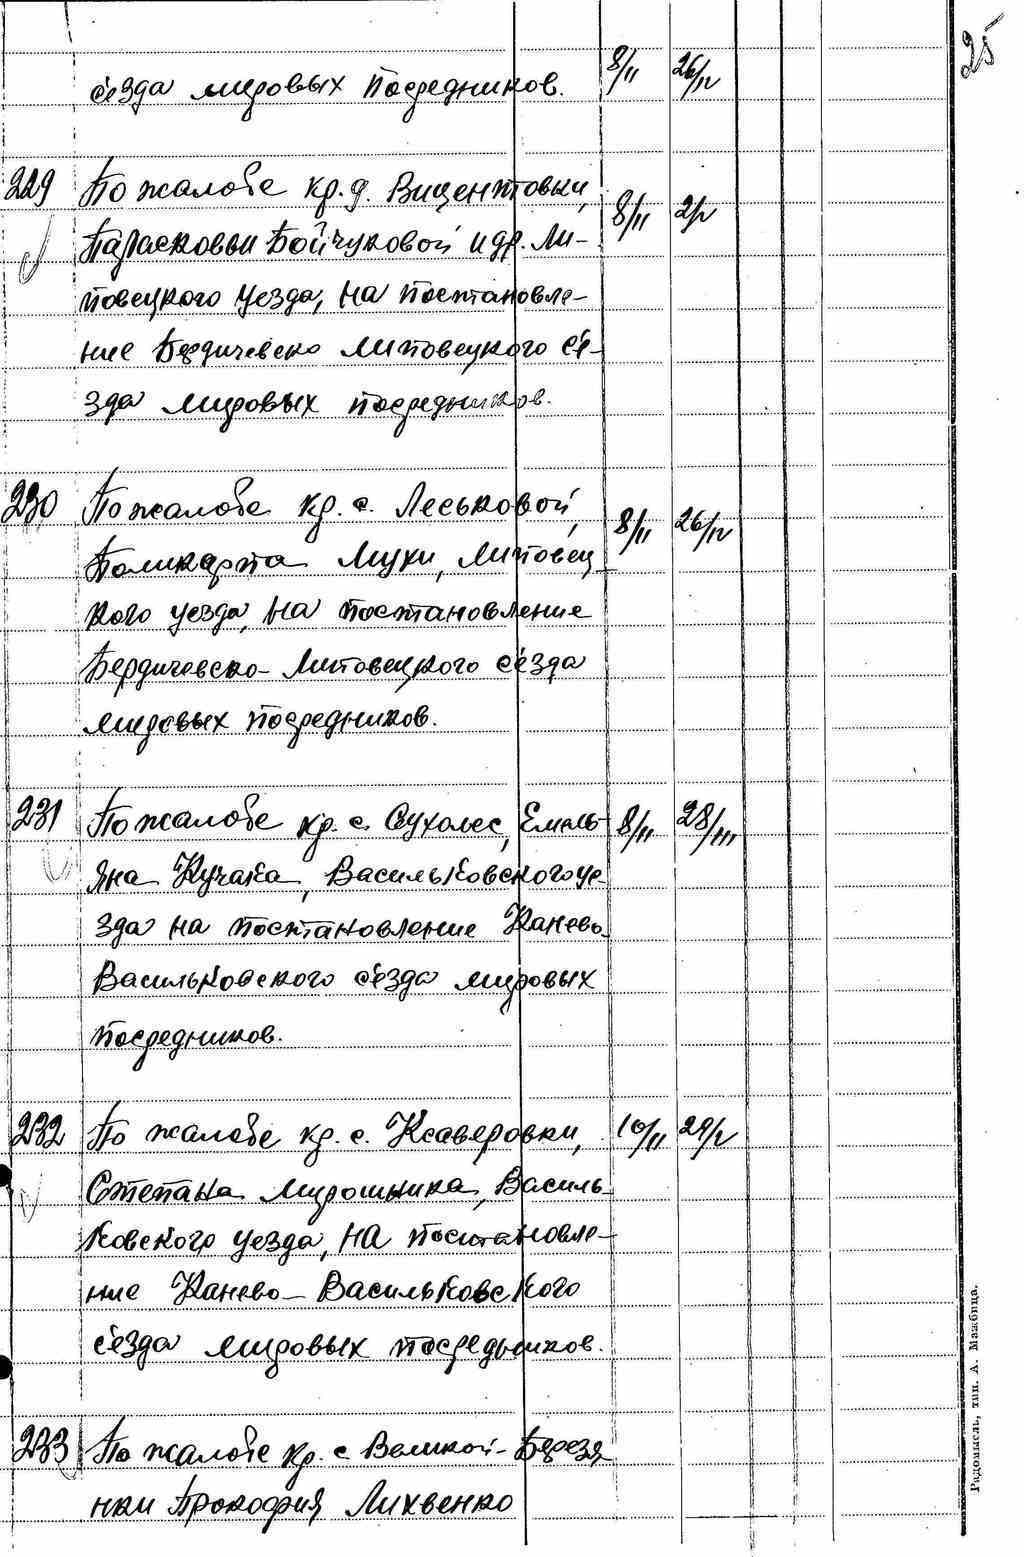 25
с'езда мировых посредников. 8/II 26/IV
229 По жалобе кр. д. Вицентовки, 8/II 2/V
Парасковьи Бойчуковой и др. Ли-
повецкого уезда, на постановле-
ние Бердичевско Липовецкого с'е-
зда мировых посредников.
230 По жалобе кр. с. Леськовой, 8/II 26/IV
Поликарпа Мухи, Липовец-
кого уезда, на постановление
Бердичевско-Липовецкого с'езда
мировых посредников.
231 По жалобе кр. с. Сухолес, Емель- 8/II 28/III
яна Кучака, Васильковского уе-
зда на постановление Канево-
Васильковского с'езда мировых
посредников.
232 По жалобе кр. с. Ксаверовки, 10/II 29/V
Степана Мирошника, Василь-
ковского уезда, на постановле-
ние Канево-Васильковского
с'езда мировых посредников.
233 По жалобе кр. с Великой-Березя
нки Прокофия Лихвенко
Радомысль, тип. А. Мажбица.